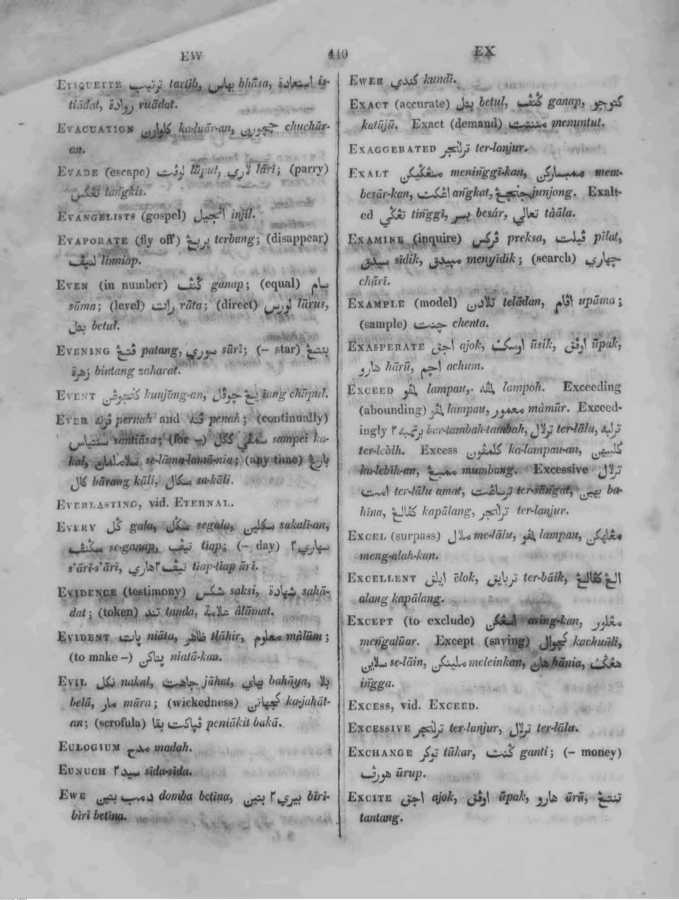 EW 449 EX
ETIQUETTE ترتيب tartīb, بهاس bhāsa, استعادة is-
tiādat, روادة ruādat.
EVACUATION كلوارن ka-luār-an, چچورن chuchūr-
an.
EVADE (escape) لوڤت lūput, لاري lāri; (parry)
تڠكس tangkis.
EVANGELISTS (gospel) انجيل injīl.
EVAPORATE (fly off) تربڠ terbang; (disappear)
لنيڤ linniap.
EVEN (in number) گنڤ ganap; (equal) سام
sāma; (level) رات rāta; (direct) لورس lūrus,
بتل betul.
EVENING ڤتڠ patang, سوري sūri; (– star) بنتڠ
زهرة bintang zaharat.
EVENT كنجوڠن kunjūng-an, يڠ چوڤل iang chūpul.
EVER ڤرنه pernah and ڤنه penah; (continually)
سنتياس santiāsa; (for –) سمڤي ككل sampei ka-
kal, سلامالمان se-lāma-lamā-nia; (any time) بارڠ
كال bārang kāli, سكال sa-kāli.
EVERLASTING, vid. ETERNAL.
EVERY گل gala, سگل segala, سكلين sakali-an,
سگنڤ se-ganap, تيڤ tiap; (– day) سهاري٢
s'āri-s'āri, تيڤ٢ هاري tiap-tiap āri.
EVIDENCE (testimony) سكسي saksi, شهادة sahā-
dat; (token) تند tanda, علامة ālāmat.
EVIDENT پات niāta, ظاهر tlāhir, معلوم mālūm;
(to make –) پتاكن niatā-kan.
EVIL نكل nakal, جاهت jāhat, بهاي bahāya, بلا
belā, مار māra; (wickedness) كجهاتن ka-jahāt-
an; (scrofula) ڤپاكت بقا peniākit bakā.
EULOGIUM مدح madah.
EUNUCH سيد٢ sīda-sīda.
EWE دمب بتين domba betīna, بيري٢ بتين bīri-
bīri betīna.
EWER كندي kundi.
EXACT (accurate) بتل betul, گنڤ ganap, كتوجو
katūjū. Exact (demand) منتت menuntut.
EXAGGERATED ترلنجر ter-lanjur.
EXALT منڠگيكن meninggi-kan, ممبسارکن mem-
besār-kan, اڠكت angkat, جنجڠ junjong. Exalt-
ed تڠگي tinggi, بسر besār, تعالي tāāla.
EXAMINE (inquire) ڤركس preksa, ڤيلت pilat,
سيدق sīdik, مپيدق menyīdik; (search) چهاري
chāri.
EXAMPLE (model) تلادن telādan, اڤام upāma;
(sample) چنت chenta.
EXASPERATE اجق ajok, اوسك ūsik, اوڤق ūpak,
هارو hārū, اچم achum.
EXCEED لمڤو lampau, لمڤه lampoh. Exceeding
(abounding) لمڤو lampau, معمور māmūr. Exceed-
ingly برتمبه٢ ber-tambah-tambah, ترلال ter-lālu, ترلبه
ter-lebih. Excess كلمڤون ka-lampau-an, كلبيهن
ka-lebih-an, ممبڠ mumbang. Excessive ترلال
امت ter-lālu amat, ترساڠت ter-sāngat, بهين ba-
hina, كڤالڠ kapālang, ترلنجر ter-lanjur.
EXCEL (surpass) ملال me-lālu, لمڤو lampau, مڠالهكن
meng-alah-kan.
EXCELLENT ايلق ēlok, تربايق ter-bāik, الڠ كڤالڠ
alang kapālang.
EXCEPT (to exclude) اسڠكن asing-kan, مڠلور
mengalūar. Except (saving) كچوال kachuāli,
سلاين se-lāin, ملينكن meleinkan, هان hānia, هڠگ
ingga.
EXCESS, vid. EXCEED.
EXCESSIVE ترلنجر ter-lanjur, ترلال ter-lāla.
EXCHANGE توكر tūkar, گنت ganti; (– money)
هورڤ ūrup.
EXCITE اجق ajok, اوڤق ūpak, هارو ūrū, تنتڠ
tantang.